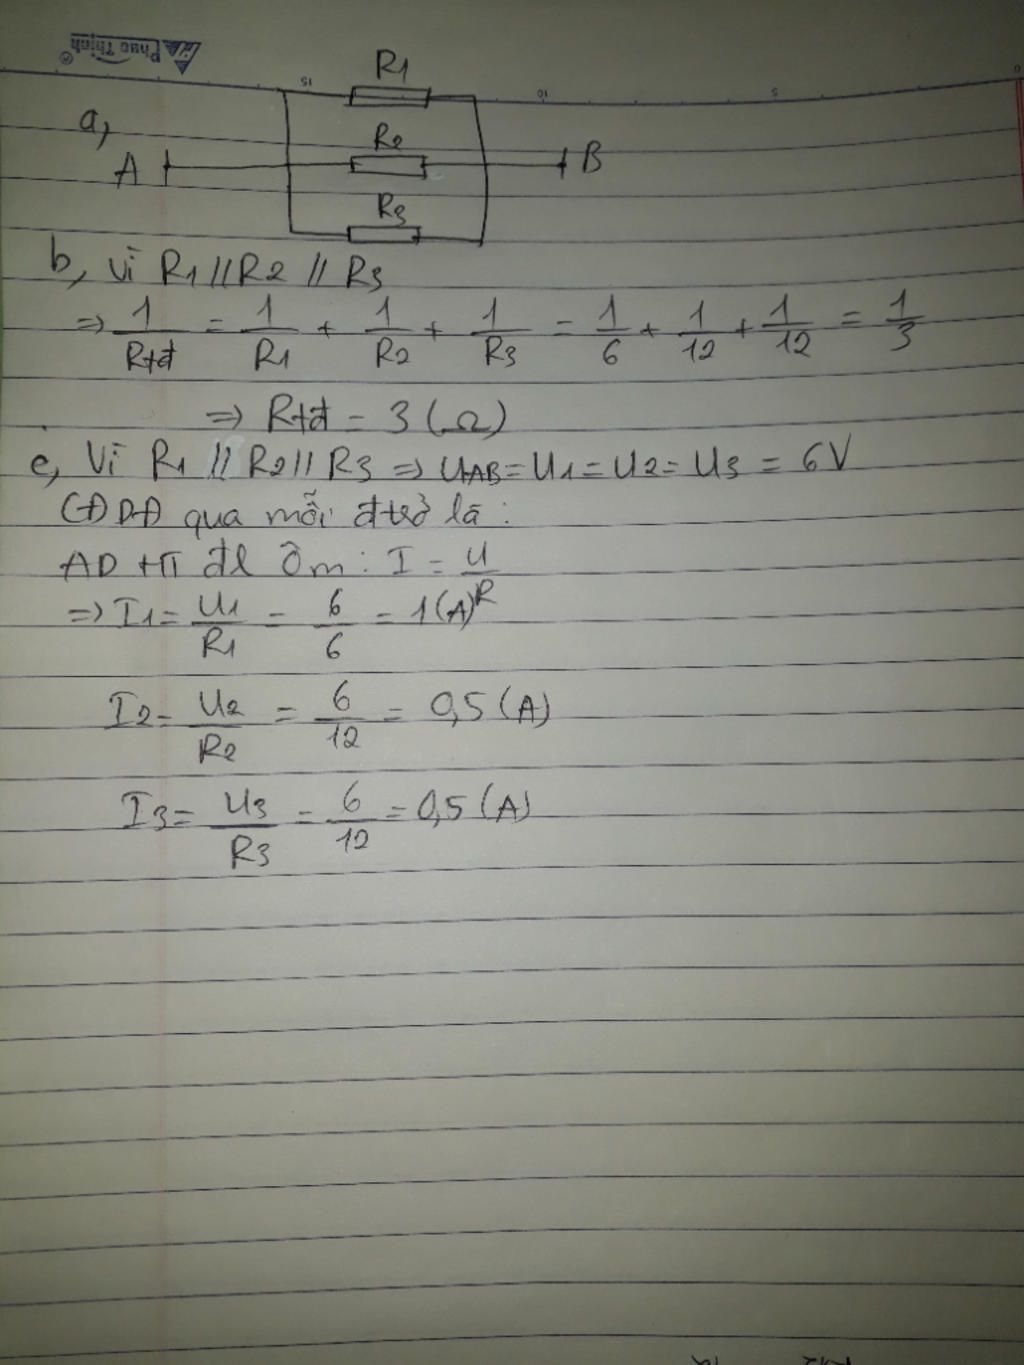 Phuc Thịnh®
15 10 5 0
R1
a,
R2
A B
R3
b, Vì R1 // R2 // R3
=> 1/Rtđ = 1/R1 + 1/R2 + 1/R3 = 1/6 + 1/12 + 1/12 = 1/3
=> Rtđ = 3 (Ω)
c, Vì R1 // R2 // R3 => UAB = U1 = U2 = U3 = 6V
CĐDĐ qua mỗi đ trở là :
AD CT đl Ôm : I = U/R
=> I1 = U1/R1 = 6/6 = 1 (A)
I2 = U2/R2 = 6/12 = 0,5 (A)
I3 = U3/R3 = 6/12 = 0,5 (A)